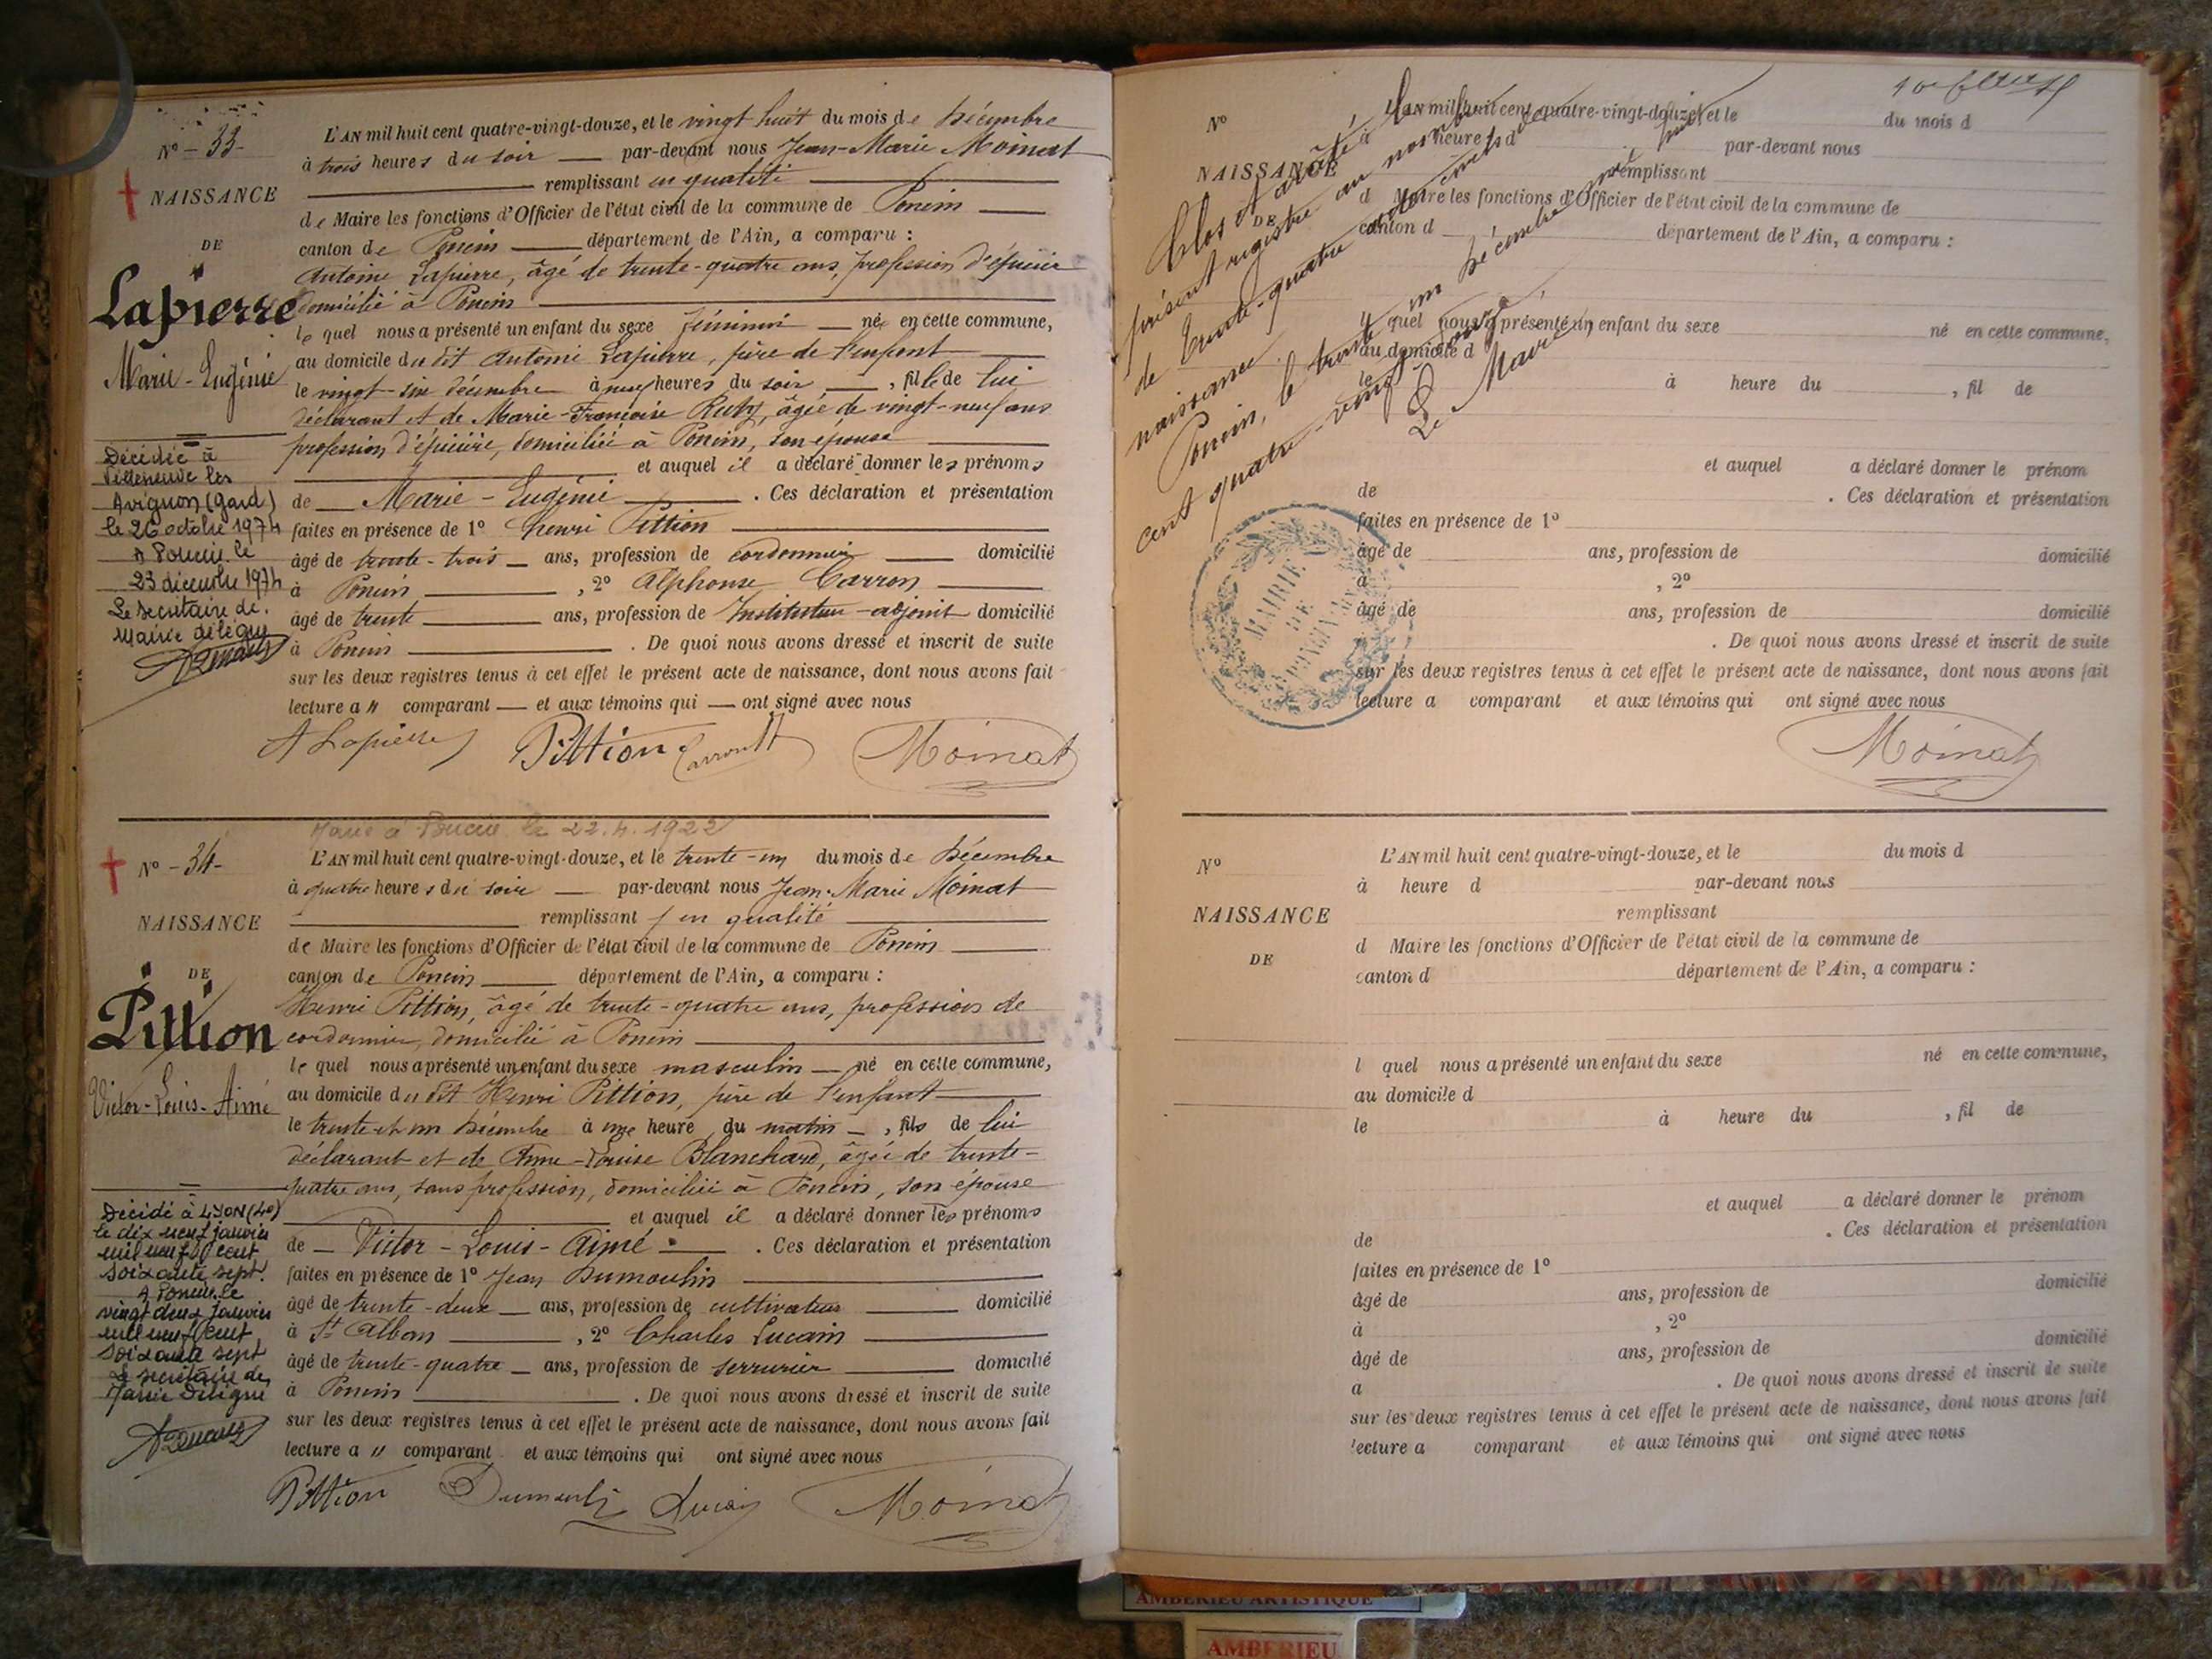 N° - 33 -
NAISSANCE
DE
Lapierre
Marie-Eugénie
Décédée à
Villeneuve les
Avignon (Gard)
le 26 octobre 1974
A Poncin le
23 décembre 1974
Le secrétaire de
Mairie délégué
L'AN mil huit cent quatre-vingt-douze, et le vingt huit du mois de Décembre
à trois heures du soir par-devant nous Jean-Marie Moinat
remplissant en qualité
de Maire les fonctions d'Officier de l'état civil de la commune de Poncin
canton de Poncin département de l'Ain, a comparu :
Antoine Lapierre, âgé de trente-quatre ans, profession d'épicier
domicilié à Poncin
le quel nous a présenté un enfant du sexe féminin née en cette commune,
au domicile du dit Antoine Lapierre, père de l'enfant
le vingt-six décembre à neuf heures du soir, fille de lui
déclarant et de Marie-Françoise Ruby, âgée de vingt-neuf ans
profession d'épicière, domiciliée à Poncin, son épouse
et auquel il a déclaré donner les prénoms
de Marie-Eugénie. Ces déclaration et présentation
faites en présence de 1° Henri Pittion
âgé de trente-trois ans, profession de cordonnier domicilié
à Poncin, 2° Alphonse Carron
âgé de trente ans, profession de Instituteur-adjoint domicilié
à Poncin. De quoi nous avons dressé et inscrit de suite
sur les deux registres tenus à cet effet le présent acte de naissance, dont nous avons fait
lecture a " comparant et aux témoins qui ont signé avec nous
A Lapierre Pittion Carron Moinat
Marié à Poncin le 22.4.1922
N° - 34 -
NAISSANCE
DE
Pittion
Victor-Louis-Aimé
Décédé à LYON (4e)
le dix neuf janvier
mil neuf cent
soixante sept.
A Poncin le
vingt deux janvier
mille neuf cent
soixante sept
Le secrétaire de
Mairie Délégué
L'AN mil huit cent quatre-vingt-douze, et le trente-un du mois de Décembre
à quatre heures du soir par-devant nous Jean-Marie Moinat
remplissant en qualité
de Maire les fonctions d'Officier de l'état civil de la commune de Poncin
canton de Poncin département de l'Ain, a comparu :
Henri Pittion, âgé de trente-quatre ans, profession de
cordonnier, domicilié à Poncin
le quel nous a présenté un enfant du sexe masculin né en cette commune,
au domicile du dit Henri Pittion, père de l'enfant
le trente et un Décembre à une heure du matin, fils de lui
déclarant et de Anne-Louise Blanchard, âgée de trente-
quatre ans, sans profession, domiciliée à Poncin, son épouse
et auquel il a déclaré donner les prénoms
de Victor-Louis-Aimé. Ces déclaration et présentation
faites en présence de 1° Jean Dumoulin
âgé de trente-deux ans, profession de cultivateur domicilié
à St Alban, 2° Charles Lucain
âgé de trente-quatre ans, profession de serrurier domicilié
à Poncin. De quoi nous avons dressé et inscrit de suite
sur les deux registres tenus à cet effet le présent acte de naissance, dont nous avons fait
lecture a " comparant et aux témoins qui ont signé avec nous
Pittion Dumoulin Lucain Moinat
Clos et arrêté le
présent registre au nombre
de trente-quatre actes
naissance.
Poncin, le trente un Décembre mil huit
cent quatre-vingt-douze.
Le Maire,
N°
NAISSANCE
DE
L'AN mil huit cent quatre-vingt-douze, et le du mois d
à heure d par-devant nous
remplissant
d Maire les fonctions d'Officier de l'état civil de la commune de
canton d département de l'Ain, a comparu :
l quel nous a présenté un enfant du sexe né en cette commune,
au domicile d
le à heure du , fil de
et auquel a déclaré donner le prénom
de . Ces déclaration et présentation
faites en présence de 1°
âgé de ans, profession de domicilié
à , 2°
âgé de ans, profession de domicilié
. De quoi nous avons dressé et inscrit de suite
sur les deux registres tenus à cet effet le présent acte de naissance, dont nous avons fait
lecture a comparant et aux témoins qui ont signé avec nous
MAIRIE
DE
Moinat
N°
NAISSANCE
DE
L'AN mil huit cent quatre-vingt-douze, et le du mois d
à heure d par-devant nous
remplissant
d Maire les fonctions d'Officier de l'état civil de la commune de
canton d département de l'Ain, a comparu :
l quel nous a présenté un enfant du sexe né en cette commune,
au domicile d
le à heure du , fil de
et auquel a déclaré donner le prénom
de . Ces déclaration et présentation
faites en présence de 1°
âgé de ans, profession de domicilié
à , 2°
âgé de ans, profession de domicilié
a . De quoi nous avons dressé et inscrit de suite
sur les deux registres tenus à cet effet le présent acte de naissance, dont nous avons fait
lecture a comparant et aux témoins qui ont signé avec nous
AMBERIEU ARTISTIQUE
AMBERIEU